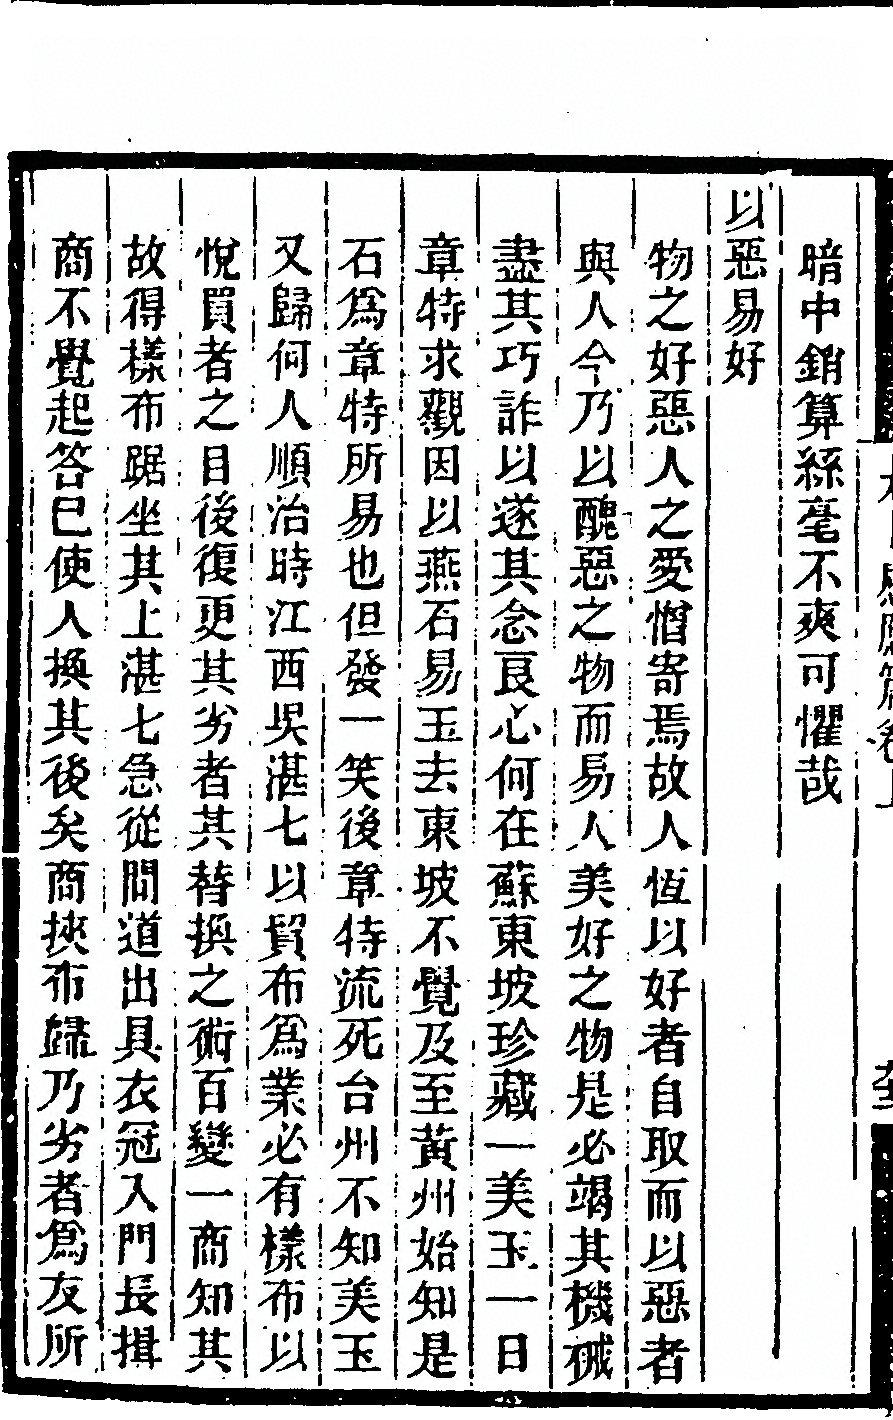 暗中銷算絲毫不爽可懼哉
以惡易好
物之好惡人之愛憎寄焉故人恆以好者自取而以惡者
與人今乃以醜惡之物而易人美好之物是必竭其機械
盡其巧詐以遂其念良心何在蘇東坡珍藏一美玉一日
章特求觀因以燕石易玉去東坡不覺及至黃州始知是
石爲章特所易也但發一笑後章特流死台州不知美玉
又歸何人順治時江西吳湛七以貿布爲業必有樣布以
悅買者之目後復更其劣者其替換之術百變一商知其
故得樣布踞坐其上湛七急從間道出具衣冠入門長揖
商不覺起答巳使人換其後矣商挾布歸乃劣者爲友所